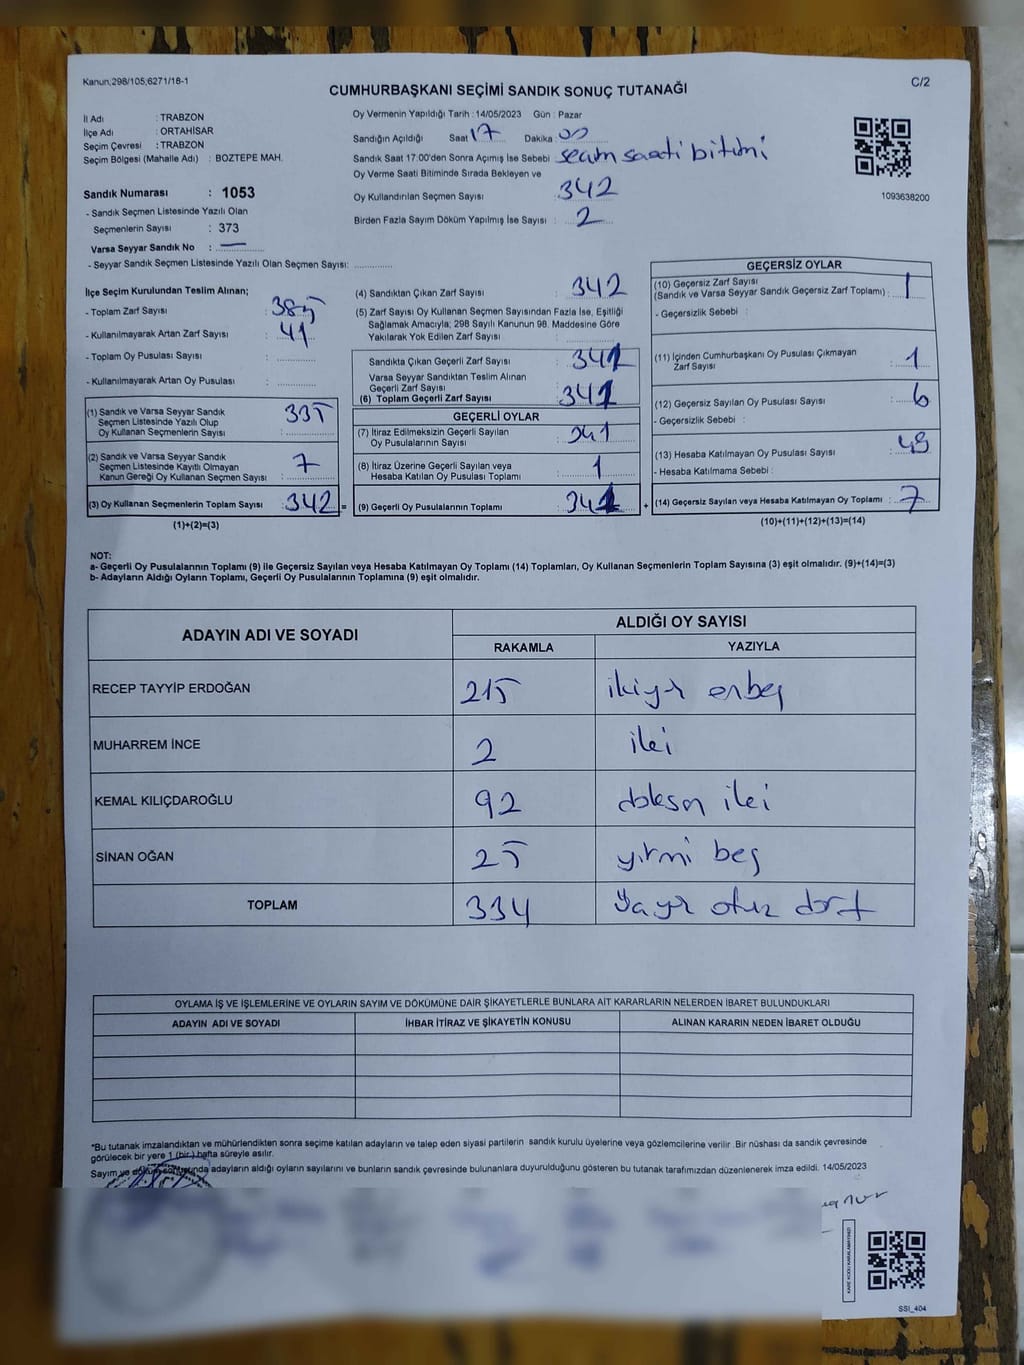 Kanun;298/105;6271/18-1
C/2
CUMHURBAŞKANI SEÇİMİ SANDIK SONUÇ TUTANAĞI
İl Adı : TRABZON
İlçe Adı : ORTAHİSAR
Seçim Çevresi : TRABZON
Seçim Bölgesi (Mahalle Adı) : BOZTEPE MAH.
Sandık Numarası : 1053
- Sandık Seçmen Listesinde Yazılı Olan
Seçmenlerin Sayısı : 373
Varsa Seyyar Sandık No : —
- Seyyar Sandık Seçmen Listesinde Yazılı Olan Seçmen Sayısı:
Oy Vermenin Yapıldığı Tarih : 14/05/2023 Gün : Pazar
Sandığın Açıldığı Saat 17 Dakika : 00
Sandık Saat 17:00'den Sonra Açımış İse Sebebi
Oy Verme Saati Bitiminde Sırada Bekleyen ve
Oy Kullandırılan Seçmen Sayısı : 342
Birden Fazla Sayım Döküm Yapılmış İse Sayısı : 2
1093638200
İlçe Seçim Kurulundan Teslim Alınan;
- Toplam Zarf Sayısı : 385
- Kullanılmayarak Artan Zarf Sayısı : 41
- Toplam Oy Pusulası Sayısı :
- Kullanılmayarak Artan Oy Pusulası :
(1) Sandık ve Varsa Seyyar Sandık
Seçmen Listesinde Yazılı Olup
Oy Kullanan Seçmenlerin Sayısı : 335
(2) Sandık ve Varsa Seyyar Sandık
Seçmen Listesinde Kayıtlı Olmayan
Kanun Gereği Oy Kullanan Seçmen Sayısı : 7
(3) Oy Kullanan Seçmenlerin Toplam Sayısı : 342 =
(1)+(2)=(3)
(4) Sandıktan Çıkan Zarf Sayısı : 342
(5) Zarf Sayısı Oy Kullanan Seçmen Sayısından Fazla İse, Eşitliği
Sağlamak Amacıyla; 298 Sayılı Kanunun 98. Maddesine Göre
Yakılarak Yok Edilen Zarf Sayısı :
Sandıkta Çıkan Geçerli Zarf Sayısı : 341
Varsa Seyyar Sandıktan Teslim Alınan
Geçerli Zarf Sayısı
(6) Toplam Geçerli Zarf Sayısı : 341
GEÇERLİ OYLAR
(7) İtiraz Edilmeksizin Geçerli Sayılan
Oy Pusulalarının Sayısı : 341
(8) İtiraz Üzerine Geçerli Sayılan veya
Hesaba Katılan Oy Pusulası Toplamı : 1
(9) Geçerli Oy Pusulalarının Toplamı : +
GEÇERSİZ OYLAR
(10) Geçersiz Zarf Sayısı
(Sandık ve Varsa Seyyar Sandık Geçersiz Zarf Toplamı) : 1
- Geçersizlik Sebebi :
(11) İçinden Cumhurbaşkanı Oy Pusulası Çıkmayan
Zarf Sayısı : 1
(12) Geçersiz Sayılan Oy Pusulası Sayısı : 6
- Geçersizlik Sebebi :
(13) Hesaba Katılmayan Oy Pusulası Sayısı :
- Hesaba Katılmama Sebebi :
(14) Geçersiz Sayılan veya Hesaba Katılmayan Oy Toplamı : 7
(10)+(11)+(12)+(13)=(14)
NOT:
a- Geçerli Oy Pusulalarının Toplamı (9) ile Geçersiz Sayılan veya Hesaba Katılmayan Oy Toplamı (14) Toplamları, Oy Kullanan Seçmenlerin Toplam Sayısına (3) eşit olmalıdır. (9)+(14)=(3)
b- Adayların Aldığı Oyların Toplamı, Geçerli Oy Pusulalarının Toplamına (9) eşit olmalıdır.
ADAYIN ADI VE SOYADI ALDIĞI OY SAYISI
RAKAMLA YAZIYLA
RECEP TAYYİP ERDOĞAN 215 ikiyüz onbeş
MUHARREM İNCE 2 iki
KEMAL KILIÇDAROĞLU 92 doksan iki
SİNAN OĞAN 25 yirmi beş
TOPLAM 334 üçyüz otuz dört
OYLAMA İŞ VE İŞLEMLERİNE VE OYLARIN SAYIM VE DÖKÜMÜNE DAİR ŞİKAYETLERLE BUNLARA AİT KARARLARIN NELERDEN İBARET BULUNDUKLARI
ADAYIN ADI VE SOYADI İHBAR İTİRAZ VE ŞİKAYETİN KONUSU ALINAN KARARIN NEDEN İBARET OLDUĞU
*Bu tutanak imzalandıktan ve mühürlendikten sonra seçime katılan adayların ve talep eden siyasi partilerin sandık kurulu üyelerine veya gözlemcilerine verilir. Bir nüshası da sandık çevresinde
görülecek bir yere 1 (bir) hafta süreyle asılır.
Sayım ve döküm sonucunda adayların aldığı oyların sayılarını ve bunların sandık çevresinde bulunanlara duyurulduğunu gösteren bu tutanak tarafımızdan düzenlenerek imza edildi. 14/05/2023
KARE KODU KARALAMAYINIZ!
SSI_404